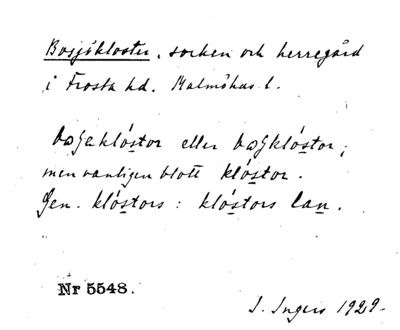 Bosjökloster, socken och herregård
i Frosta hd. Malmöhus l.
eller
men vanligen blott klóstor.
Gen. klóstors : klóstors lan.
Nr 5548.
I. Ingers 1929.